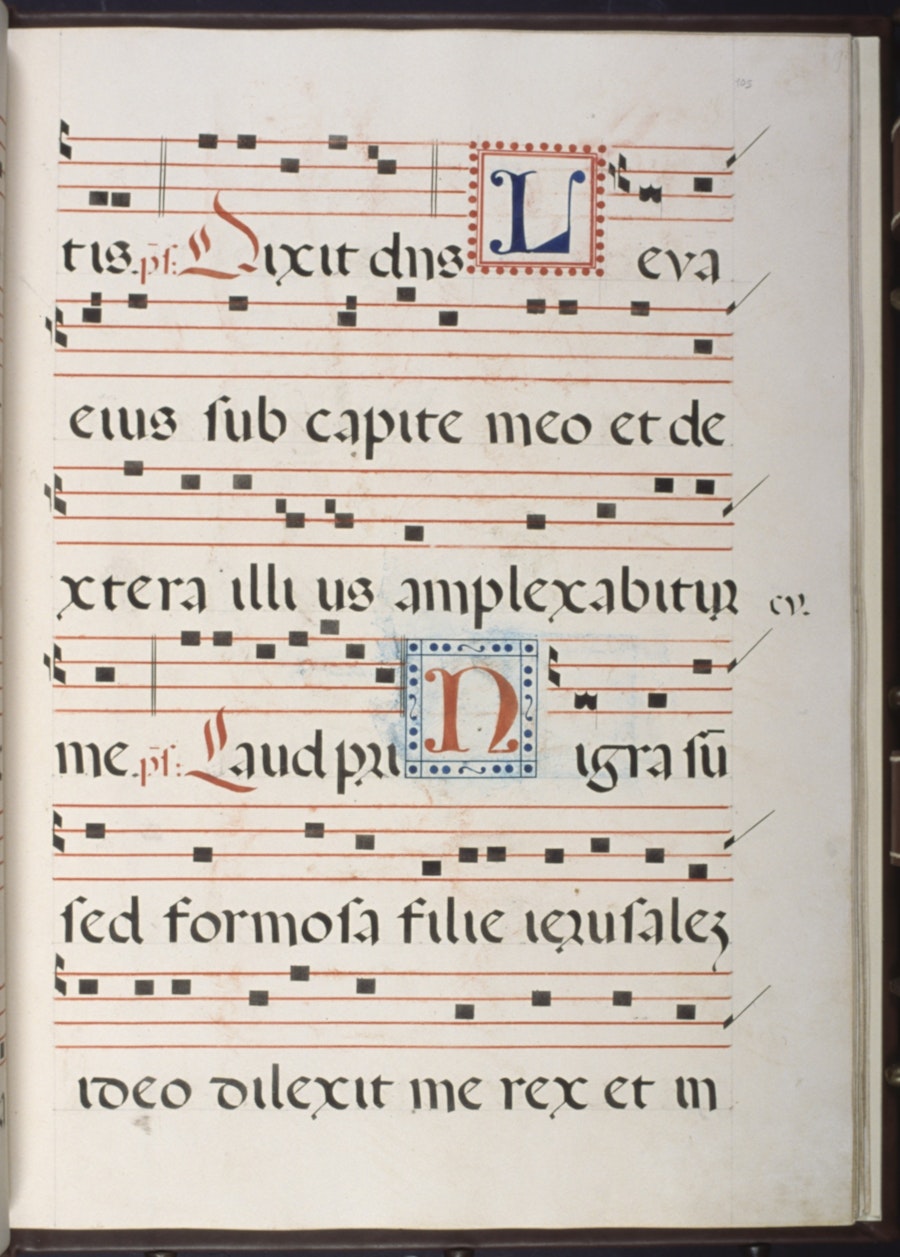 105
tis. ps̄: Dixit dn̄s Leva
eius sub capite meo et de
xtera illi us amplexabitur
me. ps̄: Laud pri Nigra sū
sed formosa filie ierusalez
ideo dilexit me rex et in